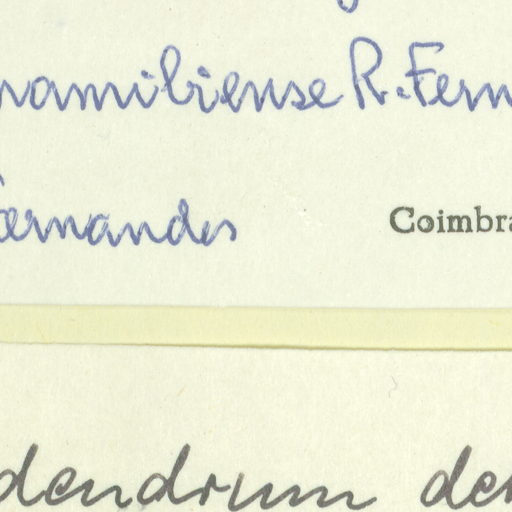 namibiense R. Fern
Fernandes Coimbra
dendrum den